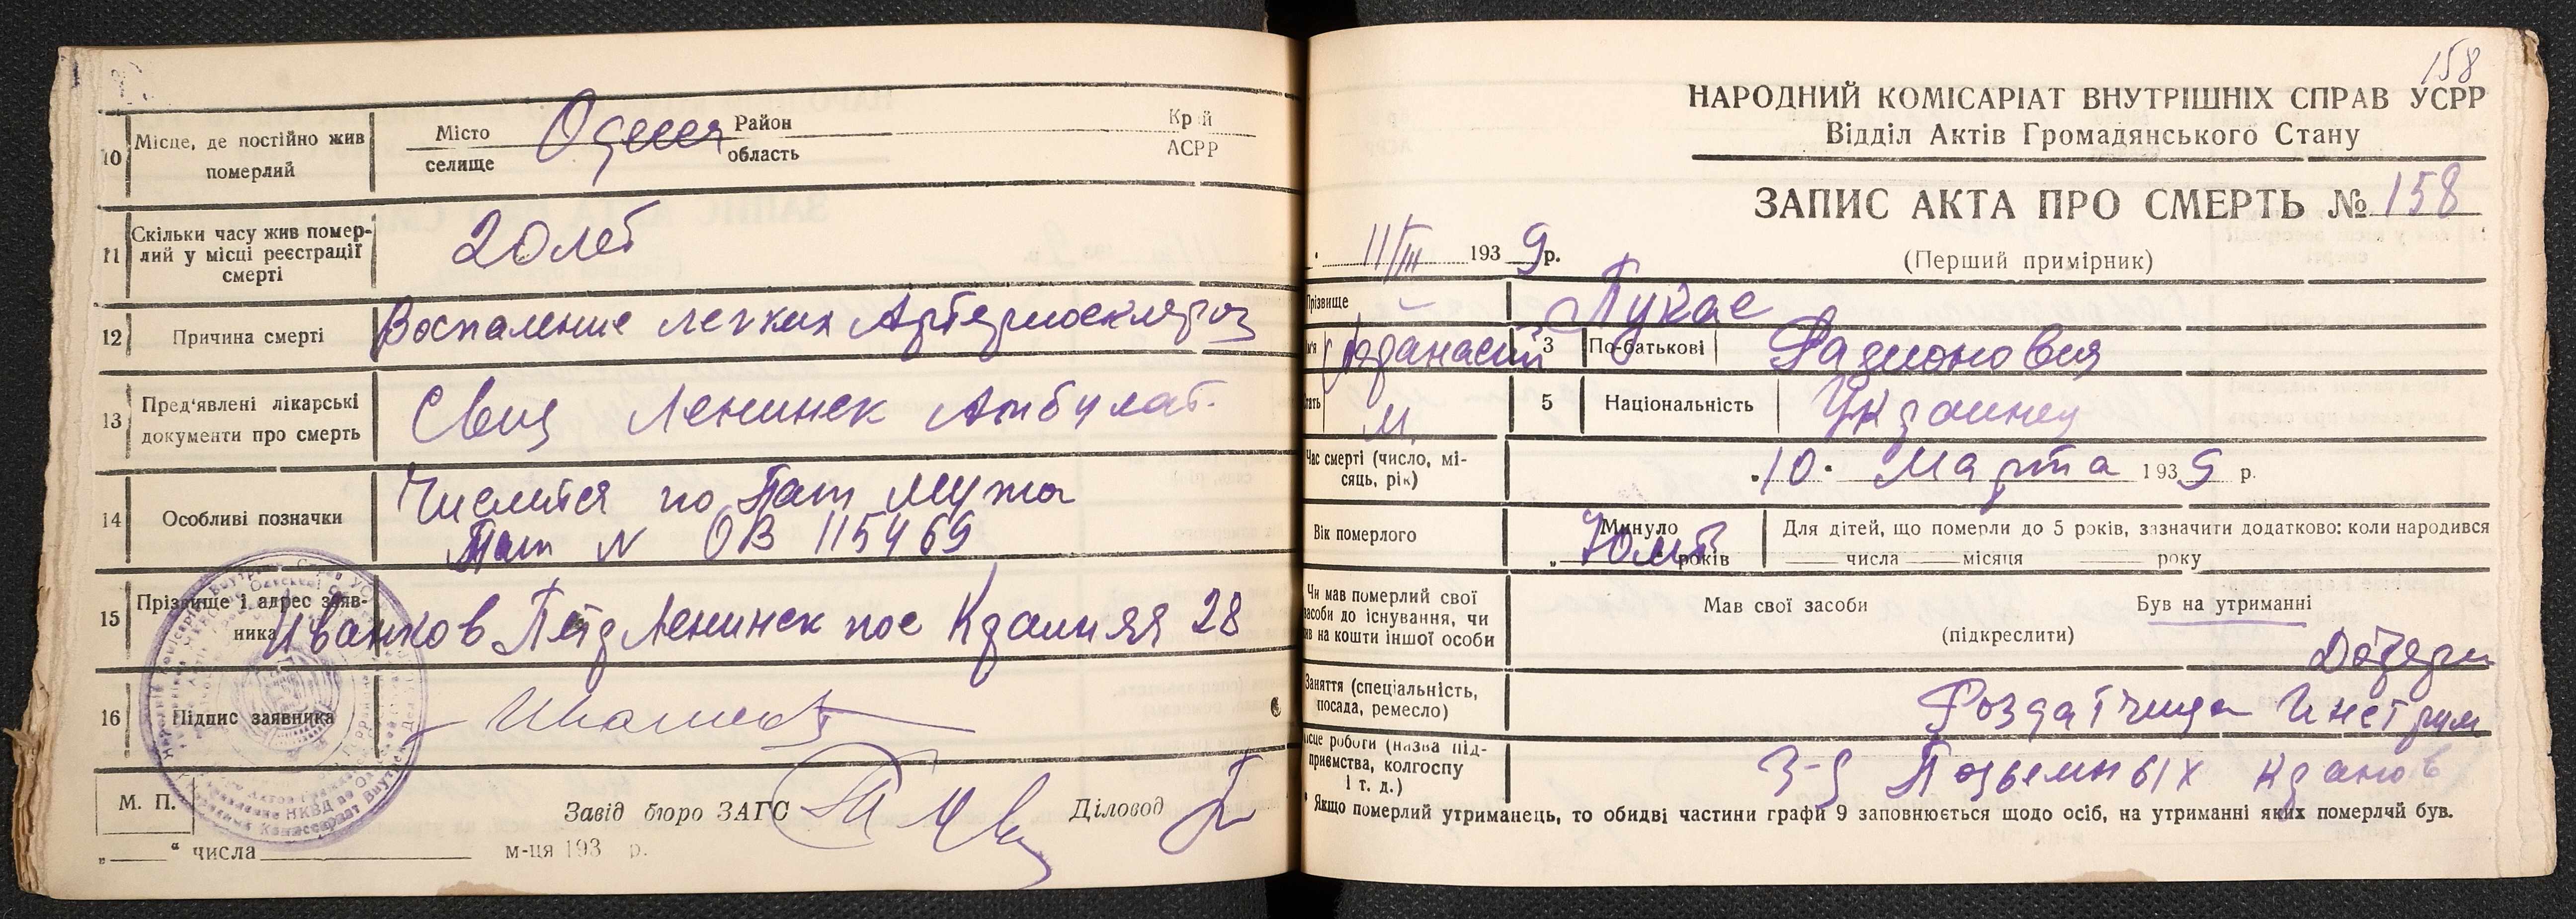 10 Місце, де постійно жив померлий
Місто
селище
Одесса
Район
область
Край
АСРР
11 Скільки часу жив помер-
лий у місці реєстрації
смерті
20 лет
12 Причина смерті
Воспаление легких Артериосклероз
13 Пред'явлені лікарські
документи про смерть
Ленинск Амбулат.
14 Особливі позначки
Числится по Пасп Мужа
Пасп N ОВ 115469
15 Прізвище і адрес заяв-
ника
Иванков Петр Ленинск пос Крайняя 28
16 Підпис заявника
М. П.
Завід бюро ЗАГС
Діловод
„ “ числа м-ця 193 р.
158
НАРОДНИЙ КОМІСАРІАТ ВНУТРІШНІХ СПРАВ УСРР
Відділ Актів Громадянського Стану
ЗАПИС АКТА ПРО СМЕРТЬ № 158
11/III 1939 р.
(Перший примірник)
Прізвище
3 По-батькові Радионовея
м
5 Національність Украинец
Час смерті (число, мі-
сяць, рік)
10 Марта 1939 р.
Вік померлого
Минуло 70 лет років
Для дітей, що померли до 5 років, зазначити додатково: коли народився
числа місяця року
Чи мав померлий свої
засоби до існування, чи
жив на кошти іншої особи
Мав свої засоби
Був на утриманні
(підкреслити)
Дочери
Заняття (спеціальність,
посада, ремесло)
Роздатчица Инструм
Місце роботи (назва під-
приємства, колгоспу
і т. д.)
З-д Подъемных кранов
* Якщо померлий утриманець, то обидві частини графи 9 заповнюється щодо осіб, на утриманні яких померлий був.